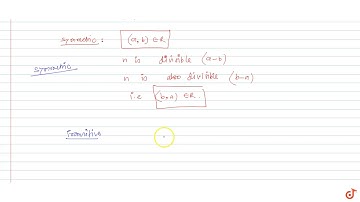 Symmetric : (a, b) ∈ R
n is divisible (a-b)
Symmetric
n is also divisible (b-a)
i.e (b, a) ∈ R.
Transitive